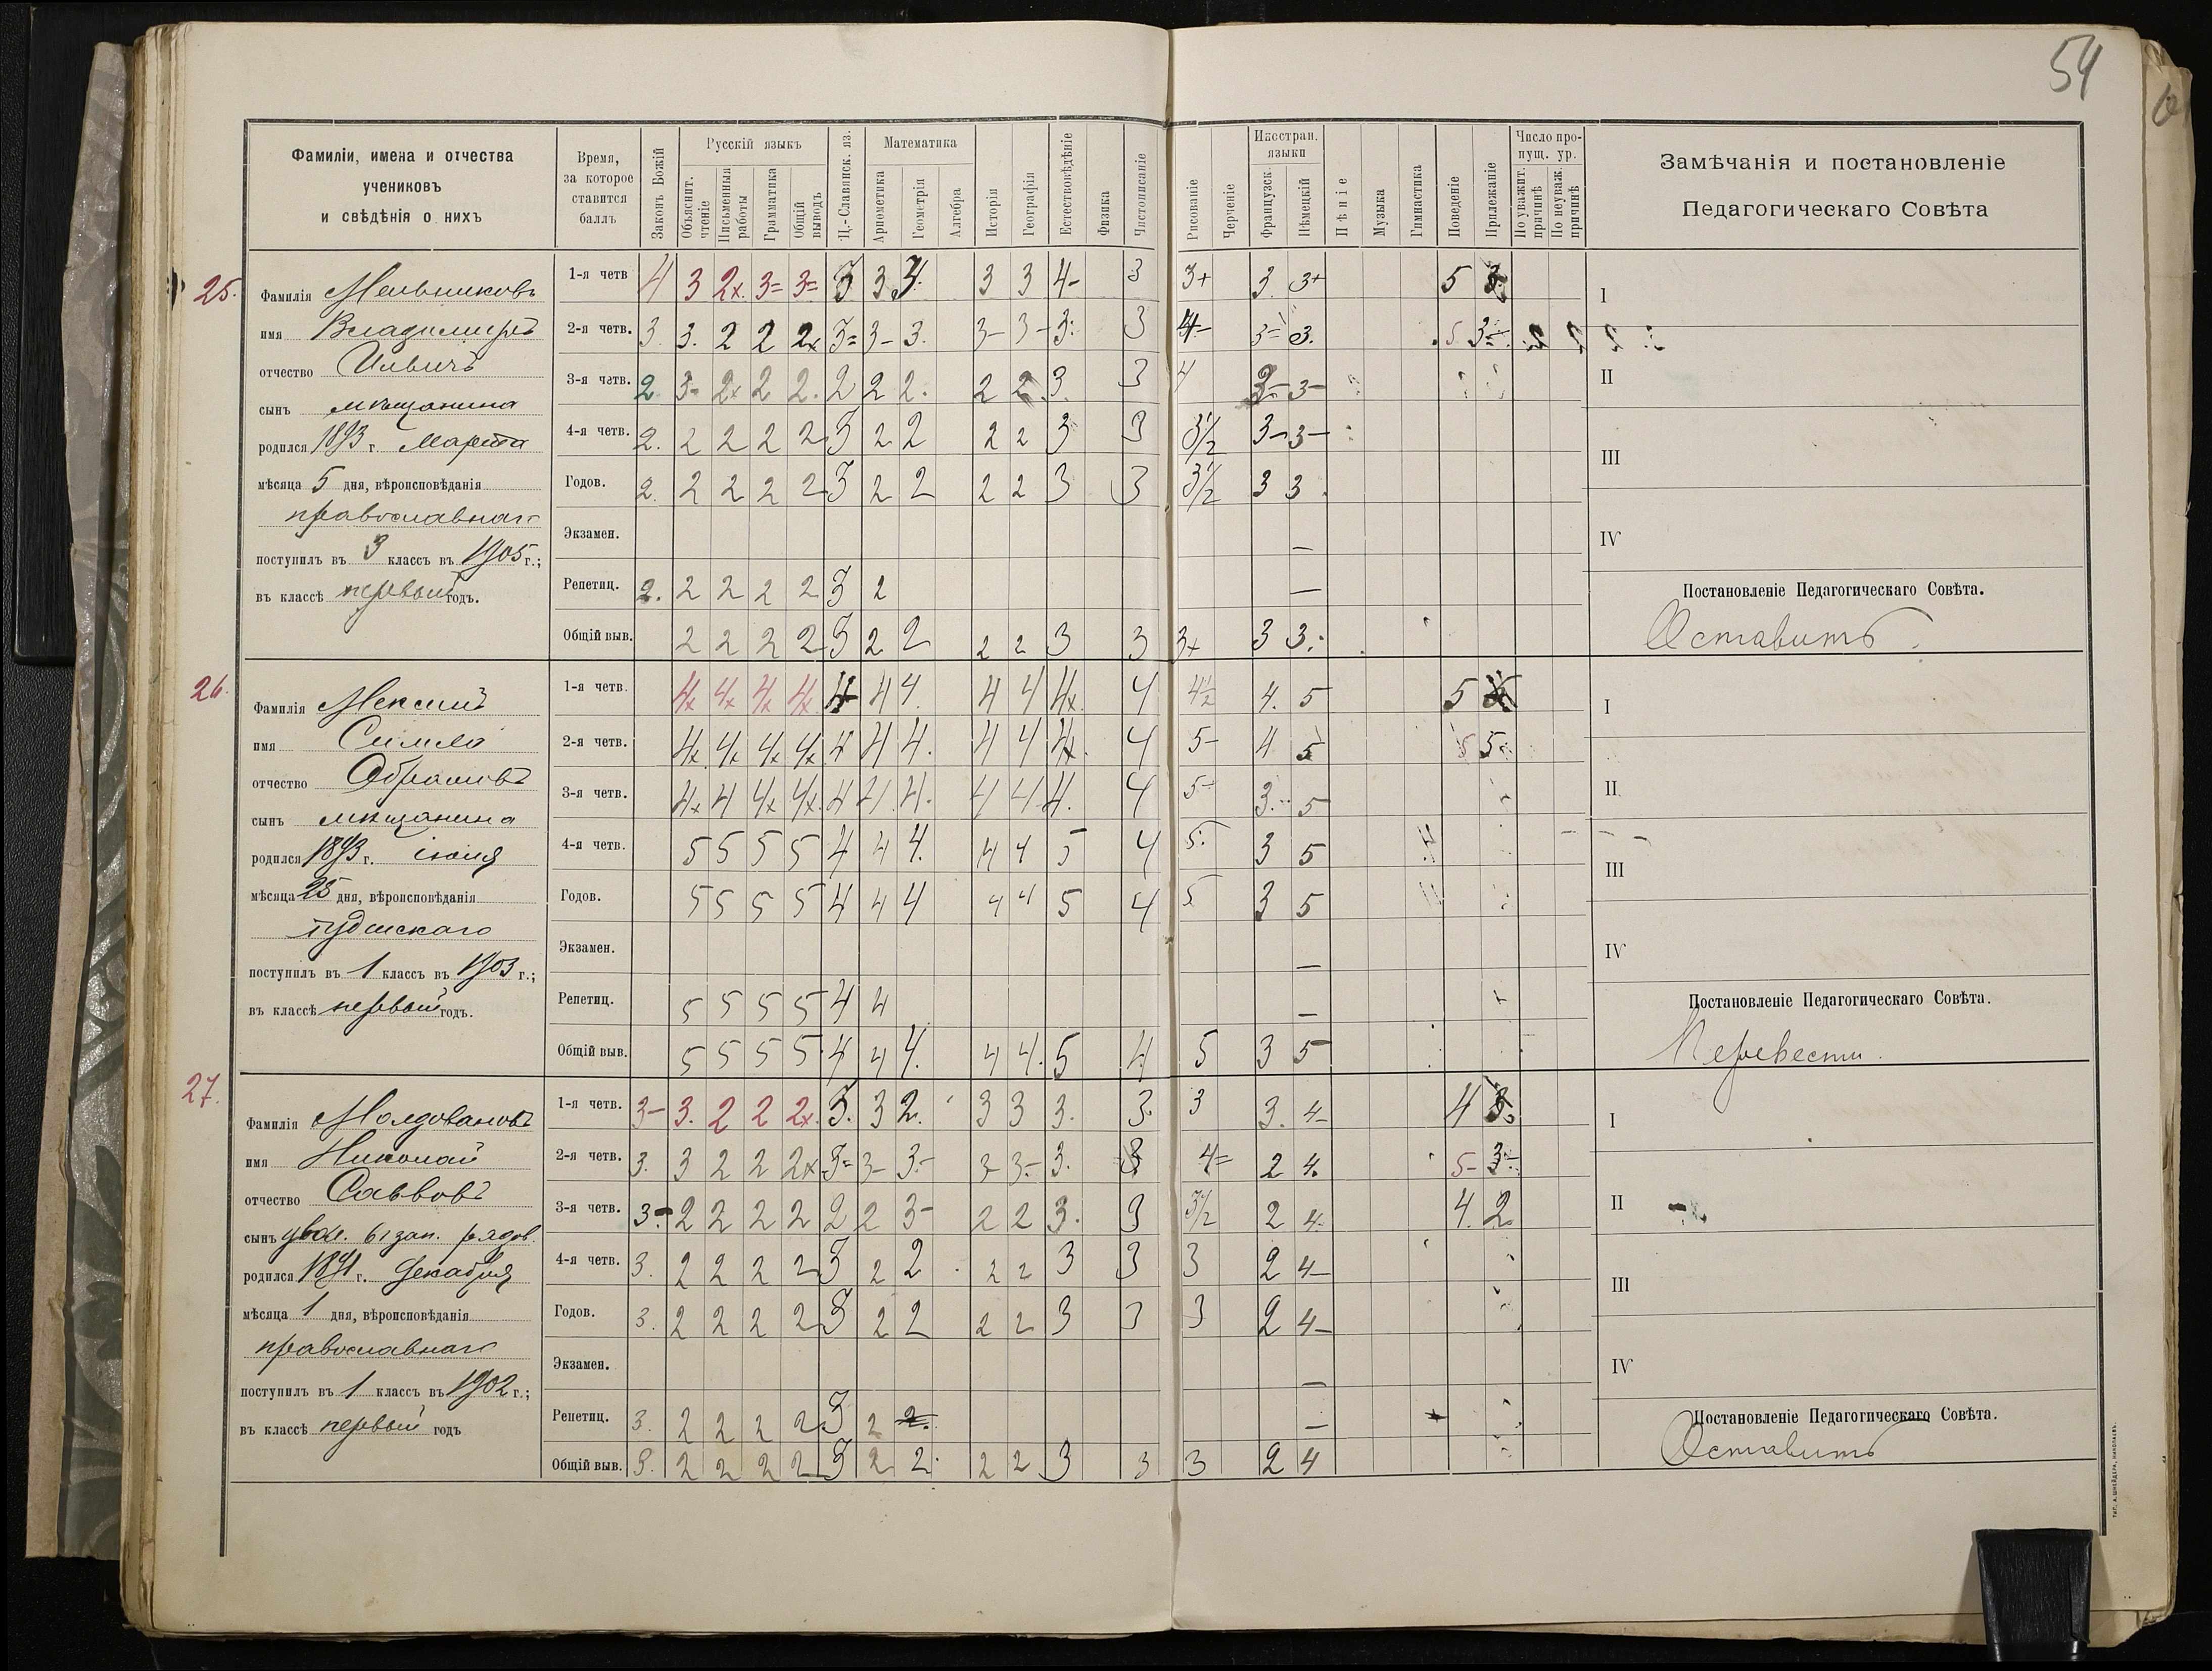 54
Фамиліи, имена и отчества
учениковъ
и свѣдѣнія о нихъ
Время,
за которое
ставится
баллъ
Законъ Божій
Русскій языкъ
Объяснит. чтеніе
Письменныя работы
Грамматика
Общій выводъ
Ц.-Славянск. яз.
Математика
Ариѳметика
Геометрія
Алгебра
Исторія
Географія
Естествовѣдѣніе
Физика
Чистописаніе
Рисованіе
Черченіе
Иностран. языки
Французск.
Нѣмецкій
Пѣніе
Музыка
Гимнастика
Поведеніе
Прилежаніе
Число пропущ. ур.
По уважит. причинѣ
По неуваж. причинѣ
Замѣчанія и постановленіе
Педагогическаго Совѣта
25.
Фамилія Мельниковъ
имя Владимиръ
отчество Ильичъ
сынъ мѣщанина
родился 1893 г. Марта
мѣсяца 5 дня, вѣроисповѣданія
православнаго
поступилъ въ 3 классъ въ 1905 г.;
въ классѣ первый годъ.
1-я четв 4 3 2х. 3= 3= 3 3 3. 3 3 4- 3 3+ 3. 3+ 5 3
2-я четв. 3. 3. 2 2 2х 3= 3- 3. 3- 3- 3. 3 4- 3= 3. 5 3-
3-я четв. 2 3- 2х 2 2. 2 2 2. 2 2. 3. 3 4 3- 3-
4-я четв. 2. 2 2 2 2 3 2 2 2 2 3 3 3½ 3- 3-
Годов. 2. 2 2 2 2 3 2 2 2 2 3 3 3½ 3 3
Экзамен. —
Репетиц. 2. 2 2 2 2 3 2 —
Общій выв. 2 2 2 2 3 2 2 2 2 3 3 3+ 3 3.
I
II
III
IV
Постановленіе Педагогическаго Совѣта.
Оставить.
26.
Фамилія Мексинъ
имя
отчество Абрамовъ
сынъ мѣщанина
родился 1893 г. іюня
мѣсяца 25 дня, вѣроисповѣданія
іудейскаго
поступилъ въ 1 классъ въ 1903 г.;
въ классѣ первый годъ.
1-я четв. 4х 4х 4х 4х 4 4 4. 4 4 4х. 4 4½ 4. 5 5
2-я четв. 4х 4х 4х 4х 4 4 4. 4 4 4. 4 5- 4 5 5 5-
3-я четв. 4х 4 4х 4х. 4 4. 4. 4 4. 4. 4 5- 3.- 5
4-я четв. 5 5 5 5 4 4 4. 4 4 5 4 5. 3 5
Годов. 5 5 5 5 4 4 4 4 4 5 4 5 3 5
Экзамен. —
Репетиц. 5 5 5 5 4 4 —
Общій выв. 5 5 5 5. 4 4 4. 4 4. 5 4 5 3 5
I
II
III
IV
Постановленіе Педагогическаго Совѣта.
Перевести.
27.
Фамилія Молдовановъ
имя Николай
отчество Саввовъ
сынъ зап. рядов.
родился 1891 г. Декабря
мѣсяца 1 дня, вѣроисповѣданія
православнаго
поступилъ въ 1 классъ въ 1902 г.;
въ классѣ первый годъ
1-я четв. 3- 3. 2 2 2х. 3. 3 2. 3 3 3. 3. 3 3. 4- 4 3
2-я четв. 3. 3 2 2 2х 3= 3- 3.- 3- 3.- 3. 3 4= 2 4. 5- 3-
3-я четв. 3.- 2 2 2 2 2 2 3- 2 2 3. 3 3½ 2 4. 4. 2
4-я четв. 3. 2 2 2 2 3 2 2 2 2 3 3 3 2 4-
Годов. 3. 2 2 2 2 3 2 2 2 2 3 3 3 2 4-
Экзамен. —
Репетиц. 3. 2 2 2 2 3 2 2. —
Общій выв. 3. 2 2 2 2 3 2 2. 2 2 3 3 3 2 4
I
II
III
IV
Постановленіе Педагогическаго Совѣта.
Оставить
ТИП. А. ШНЕЙДЕРА, НИКОЛАЕВЪ.